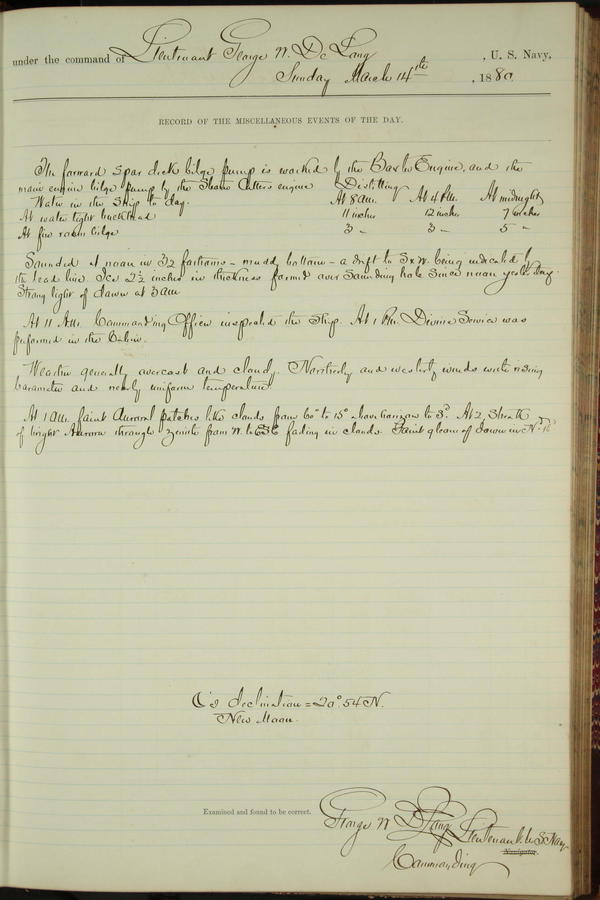 under the command of Lieutenant George W. De Long, U. S. Navy,
Sunday March 14th, 1880
RECORD OF THE MISCELLANEOUS EVENTS OF THE DAY.
The forward spar deck bilge pump is worked by the Baxter Engine, and the
main engine bilge pump by the Steam Cutters engine Distilling
Water in the Ship to day. At 8 am. At 4 P.M. At midnight
At water tight bulkhead 11 inches 12 inches 7 inches
At fire room bilge 3 - 3 - 5 -
Sounded at noon in 32 fathoms - muddy bottom - a drift to S & W. being indicated by
the lead line. Ice 2½ inches in thickness formed over Sounding hole since noon yesterday.
Strong light of dawn at 3 am
At 11 A.M. Commanding Officer inspected the Ship. At 1 P.M. Divine Service was
performed in the Cabin.
Weather generally overcast and cloudy. Northerly and westerly winds with rising
barometer and nearly uniform temperature
At 1 am. faint Auroral patches like clouds from 60° to 15° above horizon to Sd. At 2, Sheath
of bright Aurora through zenith from N. to ESE fading in clouds. Faint gleam of dawn in Nd.
☾'s declination = 20°.54' N.
New Moon.
Examined and found to be correct.
George W De Long Lieutenant U.S. Navy
Navigator.
Commanding